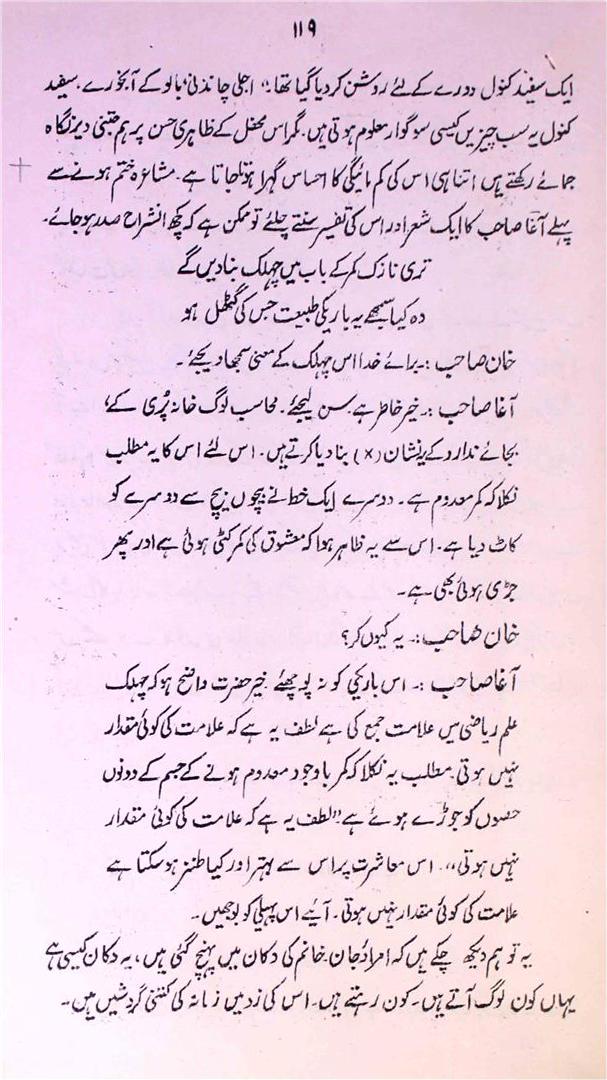 ۱۱۹
ایک سفید کنول دورے کے لئے روشن کردیا گیا تھا:” اجلی چاندنی، بالو کے آبخورے، سفید
کنول یہ سب چیزیں کیسی سوگوار معلوم ہوتی ہیں۔ مگر اس محفل کے ظاہری حسن پر ہم جتنی دیر نگاہ
جمائے رکھتے ہیں اتنا ہی اس کی کم مائیگی کا احساس گہرا ہوتا جاتا ہے۔ مشاعرہ ختم ہونے سے
پہلے آغا صاحب کا ایک شعر اور اس کی تفسیر سنتے چلئے تو ممکن ہے کہ کچھ انشراح صدر ہو جائے۔
تری نازک کمر کے باب میں چہلک بنادیں گے
وہ کیا سمجھے یہ باریکی طبیعت جس کی گٹھل ہو
خان صاحب :۔ برائے خدا اس چہلک کے معنی سمجھا دیجئے۔
آغا صاحب :۔ خیر خاطر ہے سن لیجئے۔ محاسب لوگ خانہ پُری کے،
بجائے ندارو کے یہ نشان (×) بنا دیا کرتے ہیں۔ اس لئے اس کا یہ مطلب
نکلا کہ کمر معدوم ہے۔ دوسرے ایک خط نے بیچوں بیچ سے دوسرے کو
کاٹ دیا ہے۔ اس سے یہ ظاہر ہوا کہ معشوق کی کمر کٹی ہوئی ہے اور پھر
جڑی ہوئی بھی ہے۔
خان صاحب :۔ یہ کیوں کر؟
آغا صاحب :۔ اس باریکی کو نہ پوچھئے خیر حضرت واضح ہو کہ چہلک
علم ریاضی میں علامت جمع کی ہے لطف یہ ہے کہ علامت کی کوئی مقدار
نہیں ہوتی۔ مطلب یہ نکلا کہ کمر باوجود معدوم ہونے کے جسم کے دونوں
حصوں کو جوڑے ہوئے ہے“ لطف یہ ہے کہ علامت کی کوئی مقدار
نہیں ہوتی،،۔ اس معاشرت پر اس سے بہتر اور کیا طنز ہو سکتا ہے
علامت کی کوئی مقدار نہیں ہوتی۔ آیئے اس پہیلی کو بوجھیں۔
یہ تو ہم دیکھ چکے ہیں کہ امراؤ جان۔ خانم کی دکان میں پہنچ گئی ہیں، یہ دکان کیسی ہے
یہاں کون لوگ آتے ہیں۔ کون رہتے ہیں۔ اس کی زد میں زمانہ کی کتنی گردشیں ہیں۔